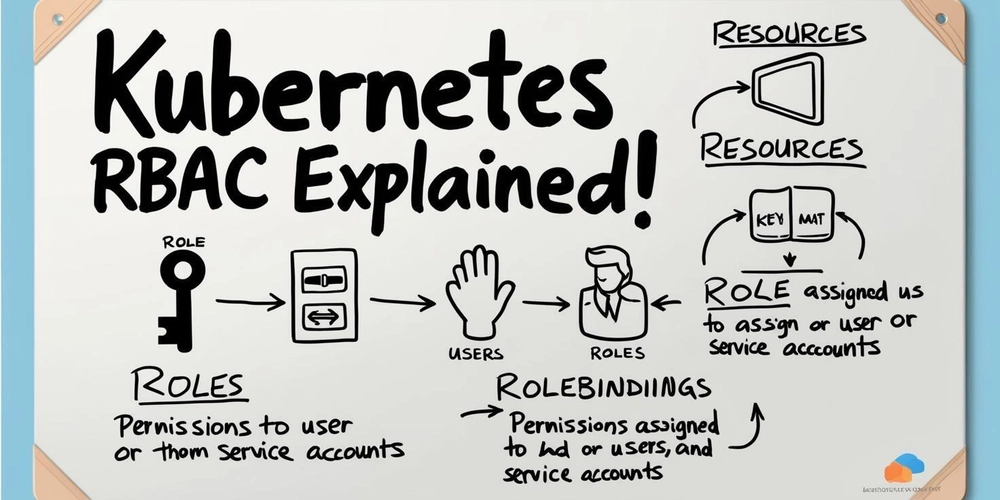 Kubernetes
RBAC Explained!
RESOURCES
RESOURCES
KEY MAT
ROLE assigned us
to assign or user or
service acccounts
ROLE
USERS
ROLES
ROLES
Permissions to user
or thom service accounts
ROLEBINDIINGS
Permissions assigned
to hd or users, and
service accounts